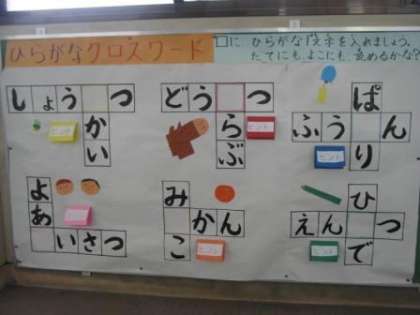 ひらがなクロスワード
□に、ひらがな1文字を入れましょう。
たてにも、よこにも、読めるかな?
しょう□つ
かい
ヒント
どう□つ
らぶ
ヒント
ぱ
ふう□ん
り
ヒント
よ
あ
□いさつ
み
□かん
こ
ヒント
ひ
えん□つ
で
ヒント